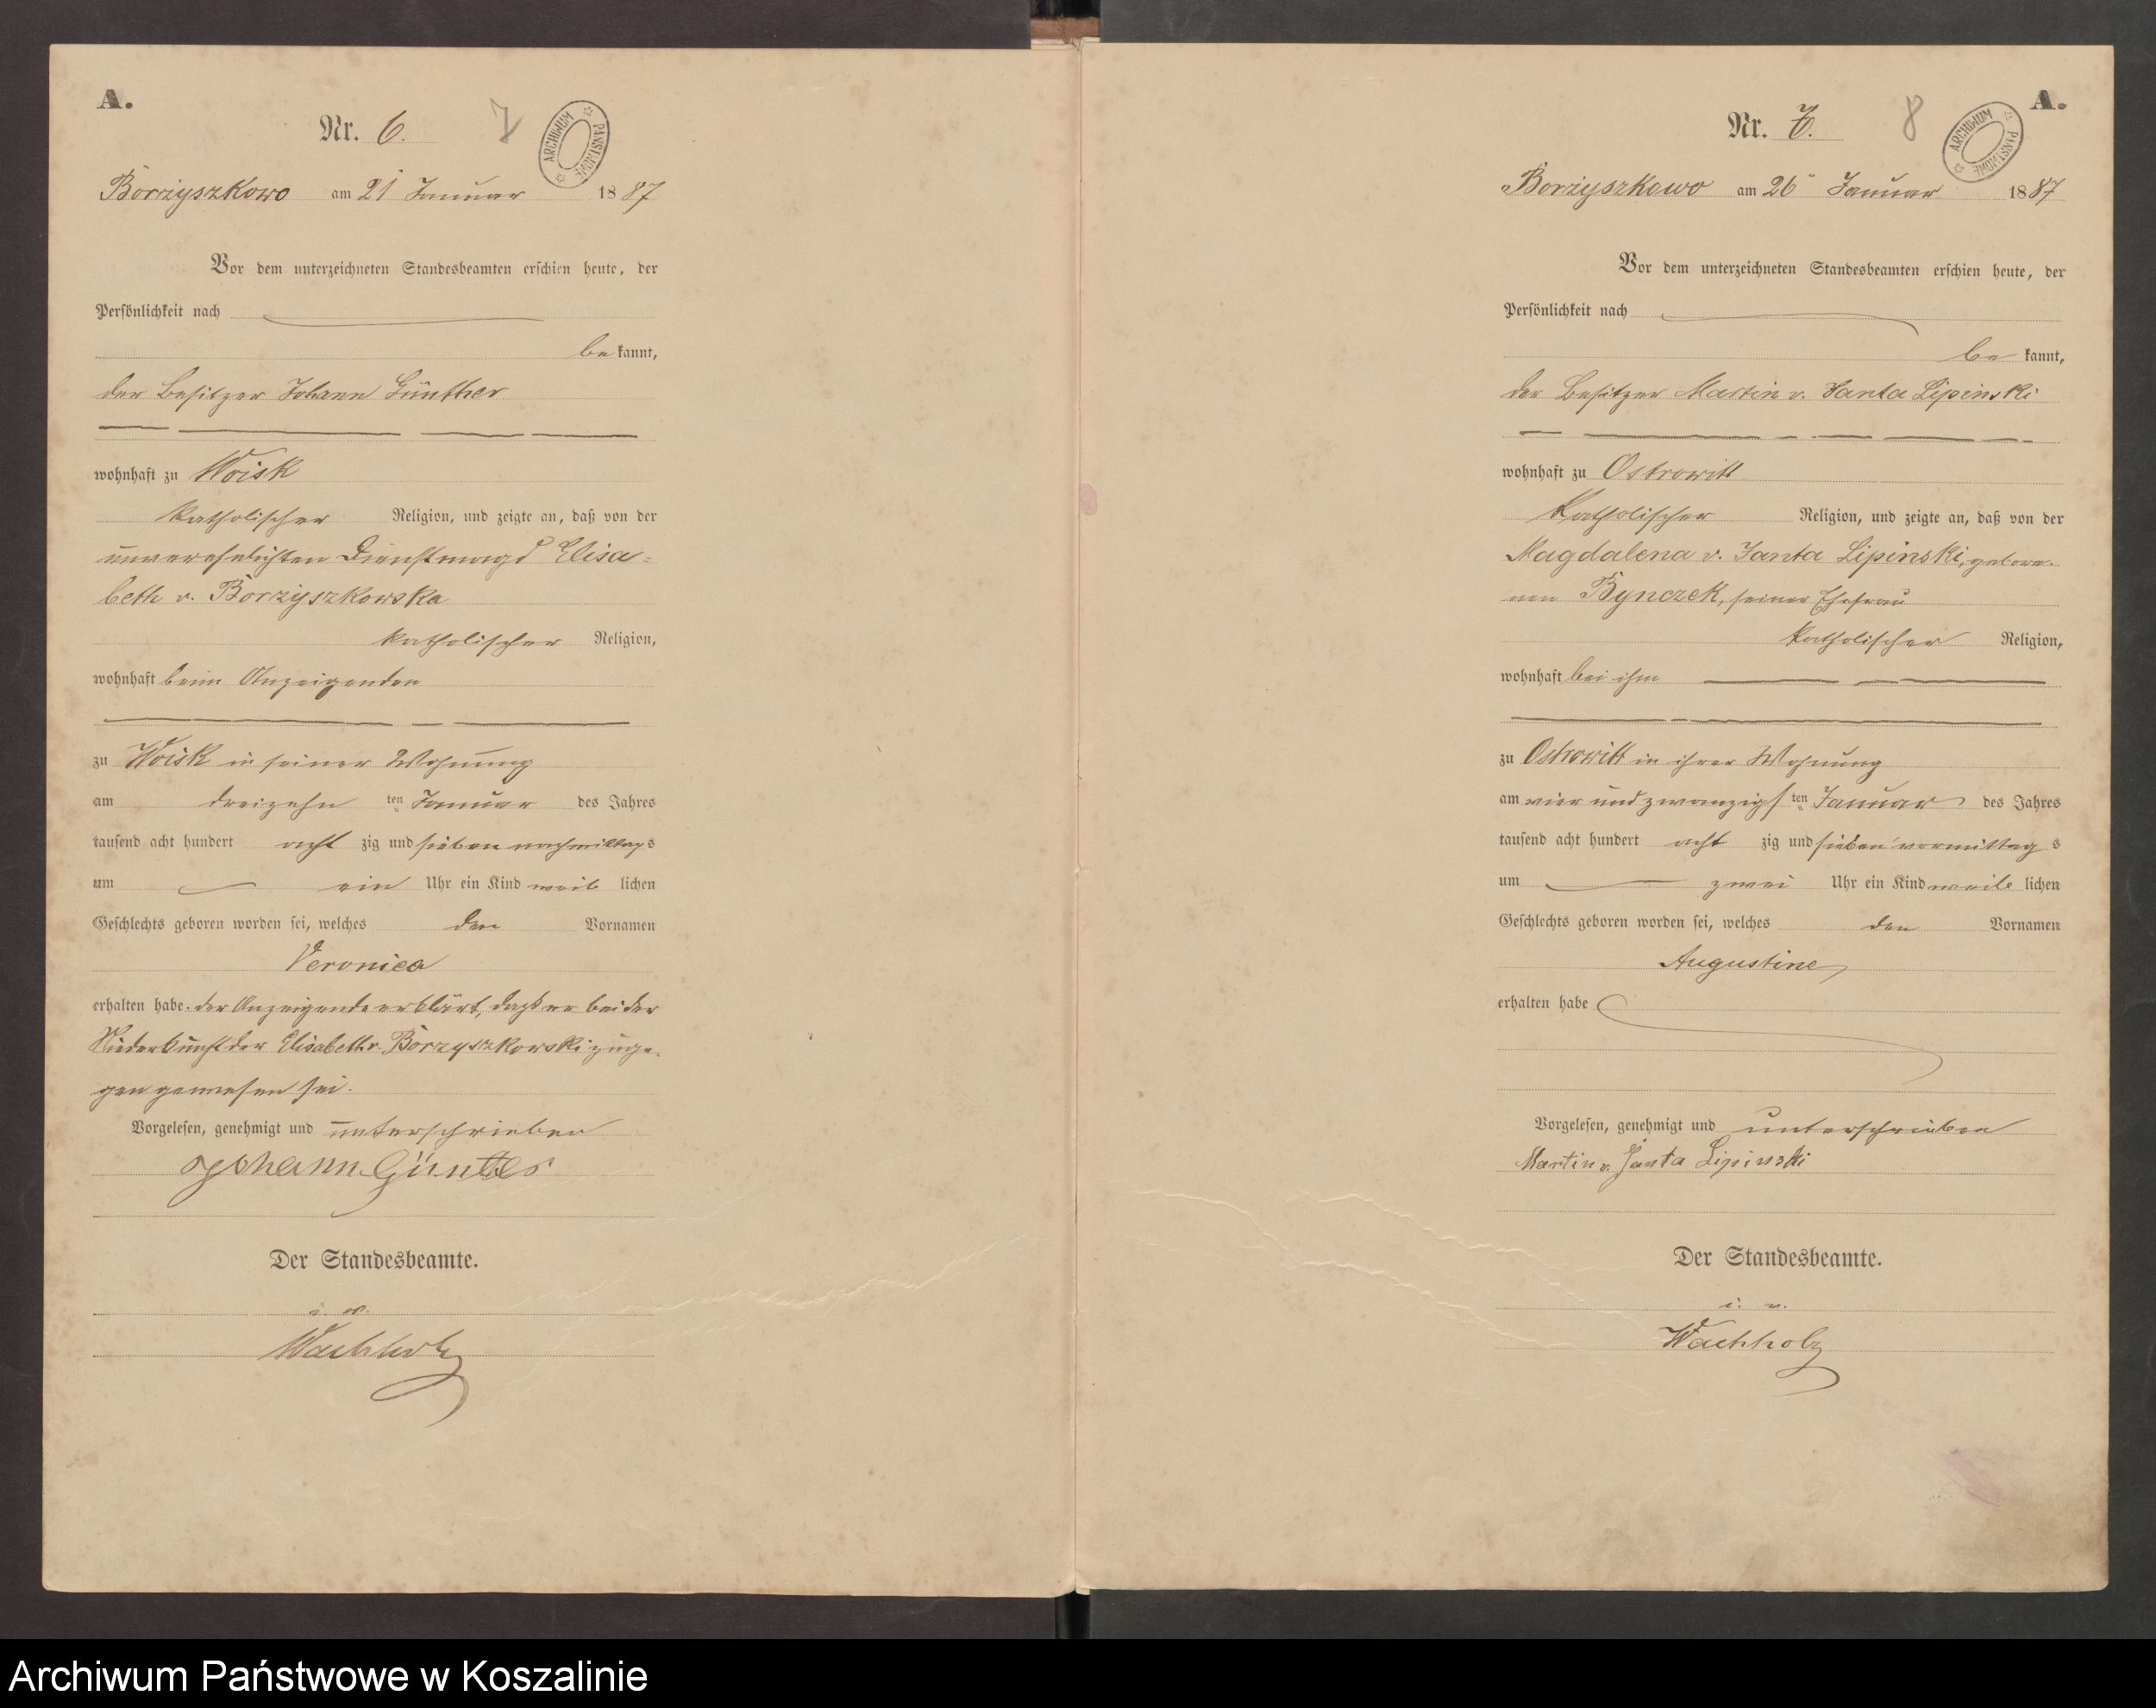 A.
Nr. 6. 7
ARCHIWUM PAŃSTWOWE
Borzyszkowo am 21 Januar 1887
Vor dem unterzeichneten Standesbeamten erschien heute, der
Persönlichkeit nach
be kannt,
der Besitzer Johann Günther
wohnhaft zu Woisk
katholischer Religion, und zeigte an, daß von der
unverehelichten Dienstmagd Elisa-
beth v. Borzyszkowska
katholischer Religion,
wohnhaft beim Anzeigenden
zu Woisk in seiner Wohnung
am dreizehn ten Januar des Jahres
tausend acht hundert acht zig und sieben nachmittags
um ein Uhr ein Kind weib lichen
Geschlechts geboren worden sei, welches den Vornamen
Veronica
erhalten habe. der Anzeigende erklärt, daß er bei der
Niederkunft der Elisabeth v. Borzyszkowski zuge-
gen gewesen sei.
Vorgelesen, genehmigt und unterschrieben
Johann Günter
Der Standesbeamte.
i. v.
Wachholz
A.
Nr. 7. 8
ARCHIWUM PAŃSTWOWE
Borzyszkowo am 26 Januar 1887
Vor dem unterzeichneten Standesbeamten erschien heute, der
Persönlichkeit nach
be kannt,
der Besitzer Martin v. Janta Lipinski
wohnhaft zu Ostrowitt
katholischer Religion, und zeigte an, daß von der
Magdalena v. Janta Lipinski, gebore-
nen Bynczek, seiner Ehefrau
katholischer Religion,
wohnhaft bei ihm
zu Ostrowitt in ihrer Wohnung
am vier und zwanzigs ten Januar des Jahres
tausend acht hundert acht zig und sieben vormittag s
um zwei Uhr ein Kind weib lichen
Geschlechts geboren worden sei, welches den Vornamen
Augustine
erhalten habe
Vorgelesen, genehmigt und unterschrieben
Martin v. Janta Lipinski
Der Standesbeamte.
i. v.
Wachholz
Archiwum Państwowe w Koszalinie